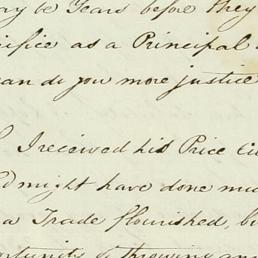 ay be Years before they
rifice as a Principal
can do you more justice
I received his Price Cu
might have done mu
a Trade flourished, bu
ortunity of throwing an